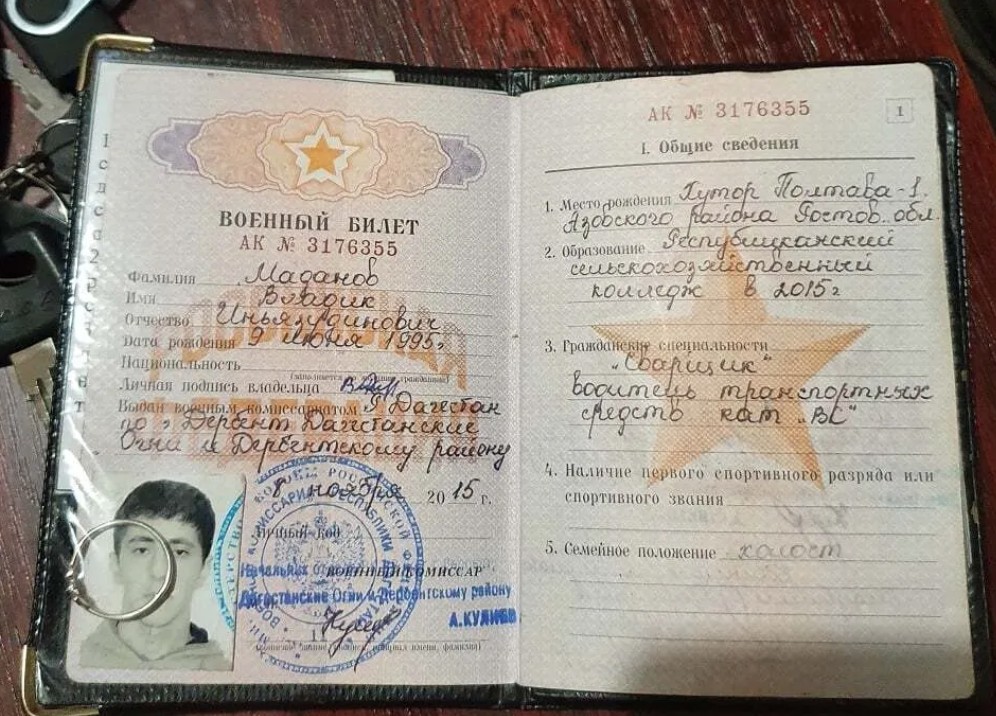 ВОЕННЫЙ БИЛЕТ
АК № 3176355
Фамилия Маданов
Имя Владик
Отчество Иньязудинович
Дата рождения 9 июня 1995г
Национальность
Личная подпись владельца
Выдан военным комиссариатом Р Дагестан
по г Дербент Дагестанские
Огни и Дербентскому району
8 ноября 2015 г.
Личный код
Начальник
ВОЕННЫЙ КОМИССАР
Дагестанские Огни и Дербентскому району
А.КУЛИЕВ
АК № 3176355
1
I. Общие сведения
1. Место рождения Хутор Полтава-1.
Азовского района Ростов. обл.
2. Образование Республиканский
сельскохозяйственный
колледж в 2015г
3. Гражданские специальности
"Сварщик"
водитель транспортных
средств кат "ВС"
4. Наличие первого спортивного разряда или
спортивного звания
5. Семейное положение холост